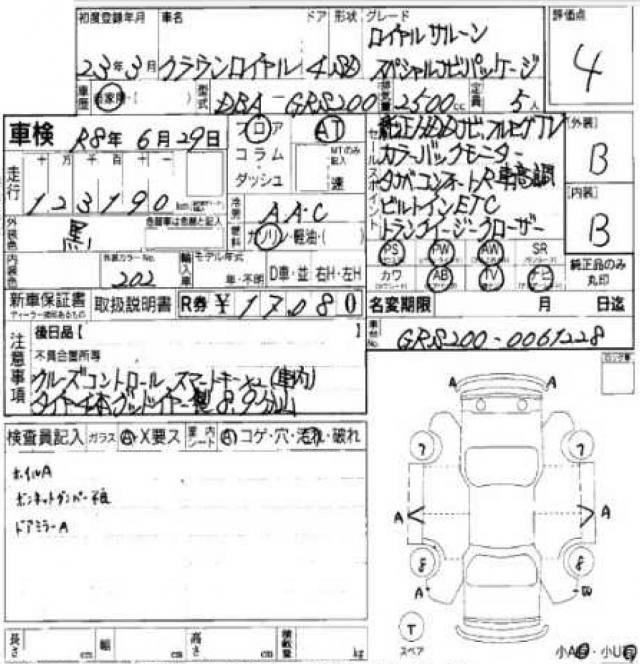 初度登録年月 車名 ドア 形状 グレード 評価点
ロイヤルサルーン
23年3月 クラウンロイヤル 4 SD スペシャルナビパッケージ 4
車歴 自家用・( ) 型式 DBA-GRS200 排気量 2500cc 定員 5人
車検 R8年6月29日 フロア AT
コラム MTのみ記入
ダッシュ 速
セールスポイント
純正HDDナビ,フルセグTV
カラーバックモニター
ビルトインETC
トランクイージークローザー
[外装] B
[内装] B
走行 十 万 千 百 十
123190 km
冷房 AAC
外装色 黒 色替車は色替と記入
燃料 ガソリン・軽油・( )
内装色 外装カラーNo. 202
輸入車 モデル年式 年・不明 D車・並 右H・左H
PS PW AW SR
カワ AB TV ナビ
純正品のみ丸印
新車保証書 取扱説明書 R券 ¥17,080
ディーラー捺印あるもの
名変期限 月 日迄
車台No. GRS200-0061228
注意事項
後日品【
不具合箇所等
クルーズコントロール スマートキー×2(車内)
タイヤ4本グッドイヤー製8,9分山
検査員記入 ガラス A・X要ス 車内シート A コゲ・穴・汚れ・破れ
ホイルA
ドアミラーA
A A
7 7
A A
8 8
A
T
スペア
小A・小U
長さ cm 幅 cm 高さ cm 積載量 kg